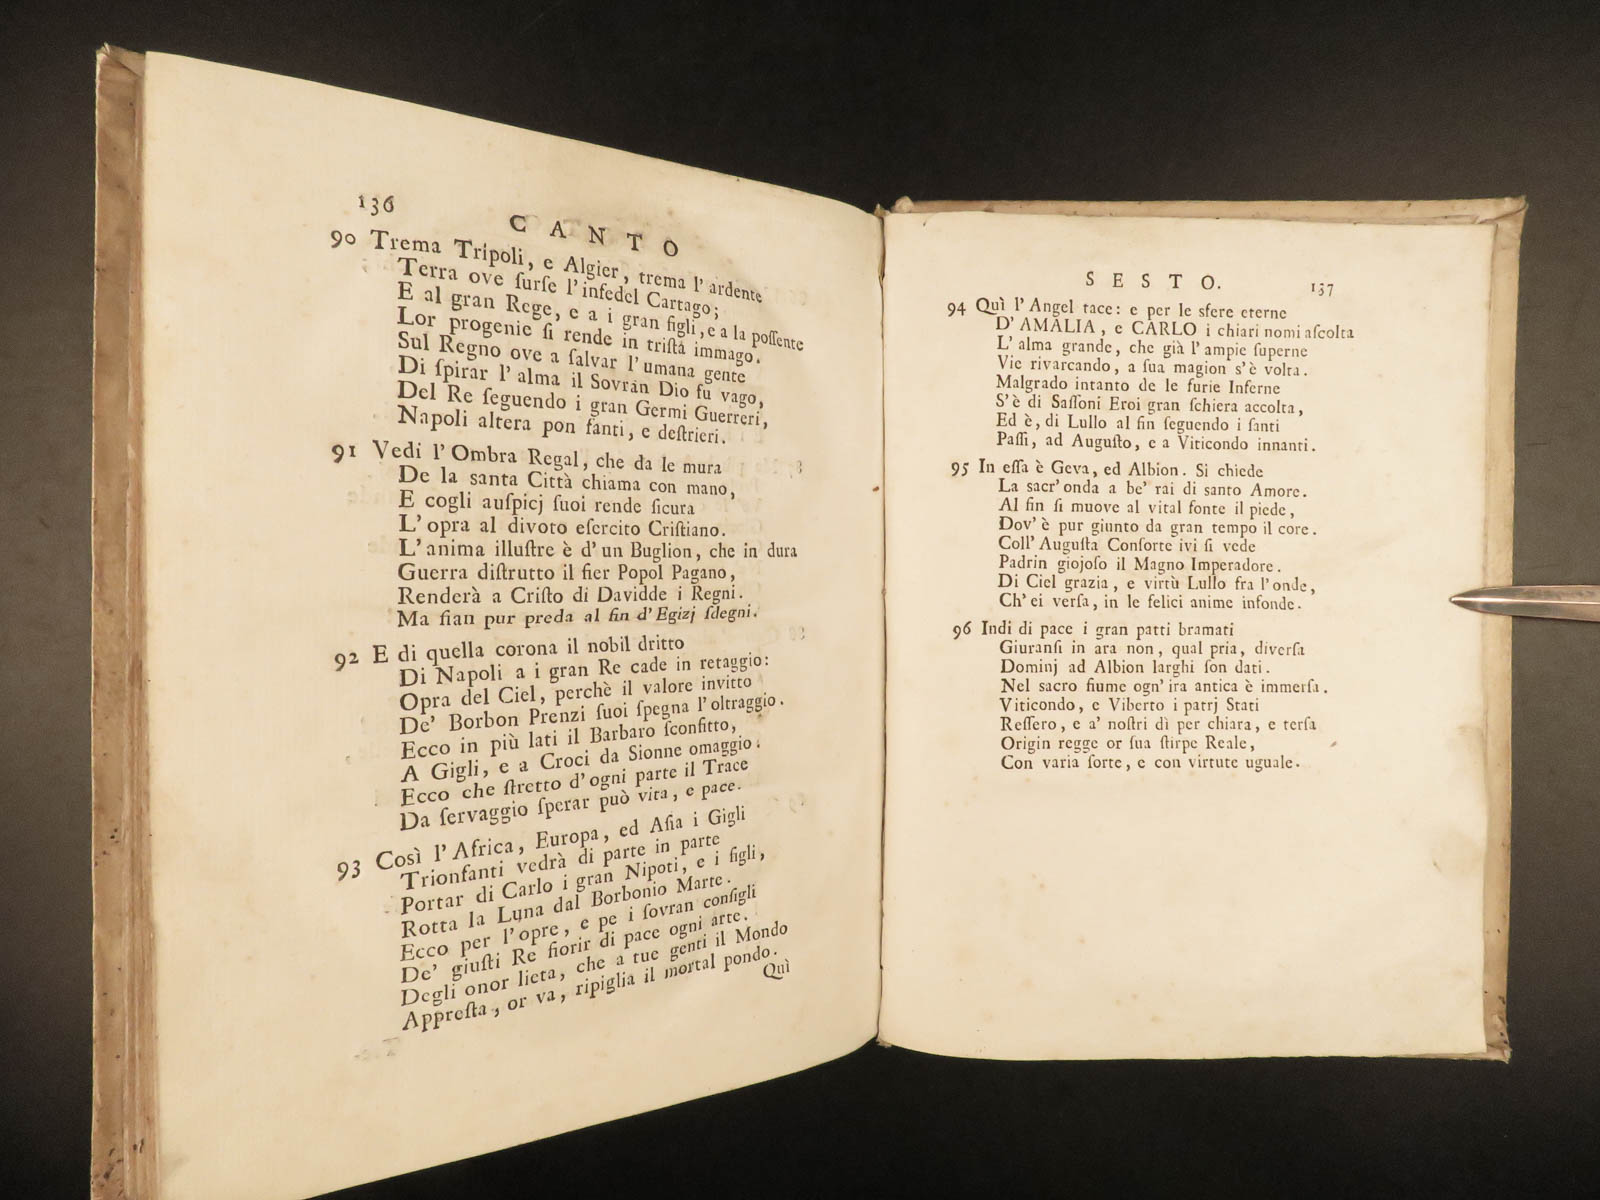 136
CANTO
90 Trema Tripoli, e Algier, trema l'ardente
Terra ove ſurſe l'infedel Cartago;
E al gran Rege, e a i gran figli, e a la poſſente
Lor progenie ſi rende in triſta immago.
Sul Regno ove a ſalvar l'umana gente
Di ſpirar l'alma il Sovran Dio fu vago,
Del Re ſeguendo i gran Germi Guerreri,
Napoli altera pon fanti, e deſtrieri.
91 Vedi l'Ombra Regal, che da le mura
De la santa Città chiama con mano,
E cogli auſpicj ſuoi rende ſicura
L'opra al divoto eſercito Criſtiano.
L'anima illuſtre è d'un Buglion, che in dura
Guerra diſtrutto il fier Popol Pagano,
Renderà a Criſto di Davidde i Regni.
Ma fian pur preda al fin d'Egizj ſdegni.
92 E di quella corona il nobil dritto
Di Napoli a i gran Re cade in retaggio:
Opra del Ciel, perchè il valore invitto
De' Borbon Prenzi ſuoi ſpegna l'oltraggio.
Ecco in più lati il Barbaro ſconfitto,
A Gigli, e a Croci da Sionne omaggio.
Ecco che ſtretto d'ogni parte il Trace
Da ſervaggio ſperar può vita, e pace.
93 Così l'Africa, Europa, ed Aſia i Gigli
Trionfanti vedrà di parte in parte
Portar di Carlo i gran Nipoti, e i figli,
Rotta la Luna dal Borbonio Marte.
Ecco per l'opre, e pe i ſovran conſigli
De' giuſti Re fiorir di pace ogni arte.
Degli onor lieta, che a tue genti il Mondo
Appreſta, or va, ripiglia il mortal pondo.
Quì
SESTO.
137
94 Quì l'Angel tace: e per le sfere eterne
D'AMALIA, e CARLO i chiari nomi aſcolta
L'alma grande, che già l'ampie ſuperne
Vie rivarcando, a ſua magion s'è volta.
Malgrado intanto de le furie Inferne
S'è di Saſſoni Eroi gran ſchiera accolta,
Ed è, di Lullo al fin ſeguendo i ſanti
Paſſi, ad Auguſto, e a Viticondo innanti.
95 In eſſa è Geva, ed Albion. Si chiede
La sacr'onda a be' rai di santo Amore.
Al fin ſi muove al vital fonte il piede,
Dov'è pur giunto da gran tempo il core.
Coll'Auguſta Conſorte ivi ſi vede
Padrin giojoſo il Magno Imperadore.
Di Ciel grazia, e virtù Lullo fra l'onde,
Ch'ei verſa, in le felici anime infonde.
96 Indi di pace i gran patti bramati
Giuranſi in ara non, qual pria, diverſa
Dominj ad Albion larghi ſon dati.
Nel sacro fiume ogn'ira antica è immerſa.
Viticondo, e Viberto i patrj Stati
Reſſero, e a' noſtri dì per chiara, e terſa
Origin regge or ſua ſtirpe Reale,
Con varia ſorte, e con virtute uguale.